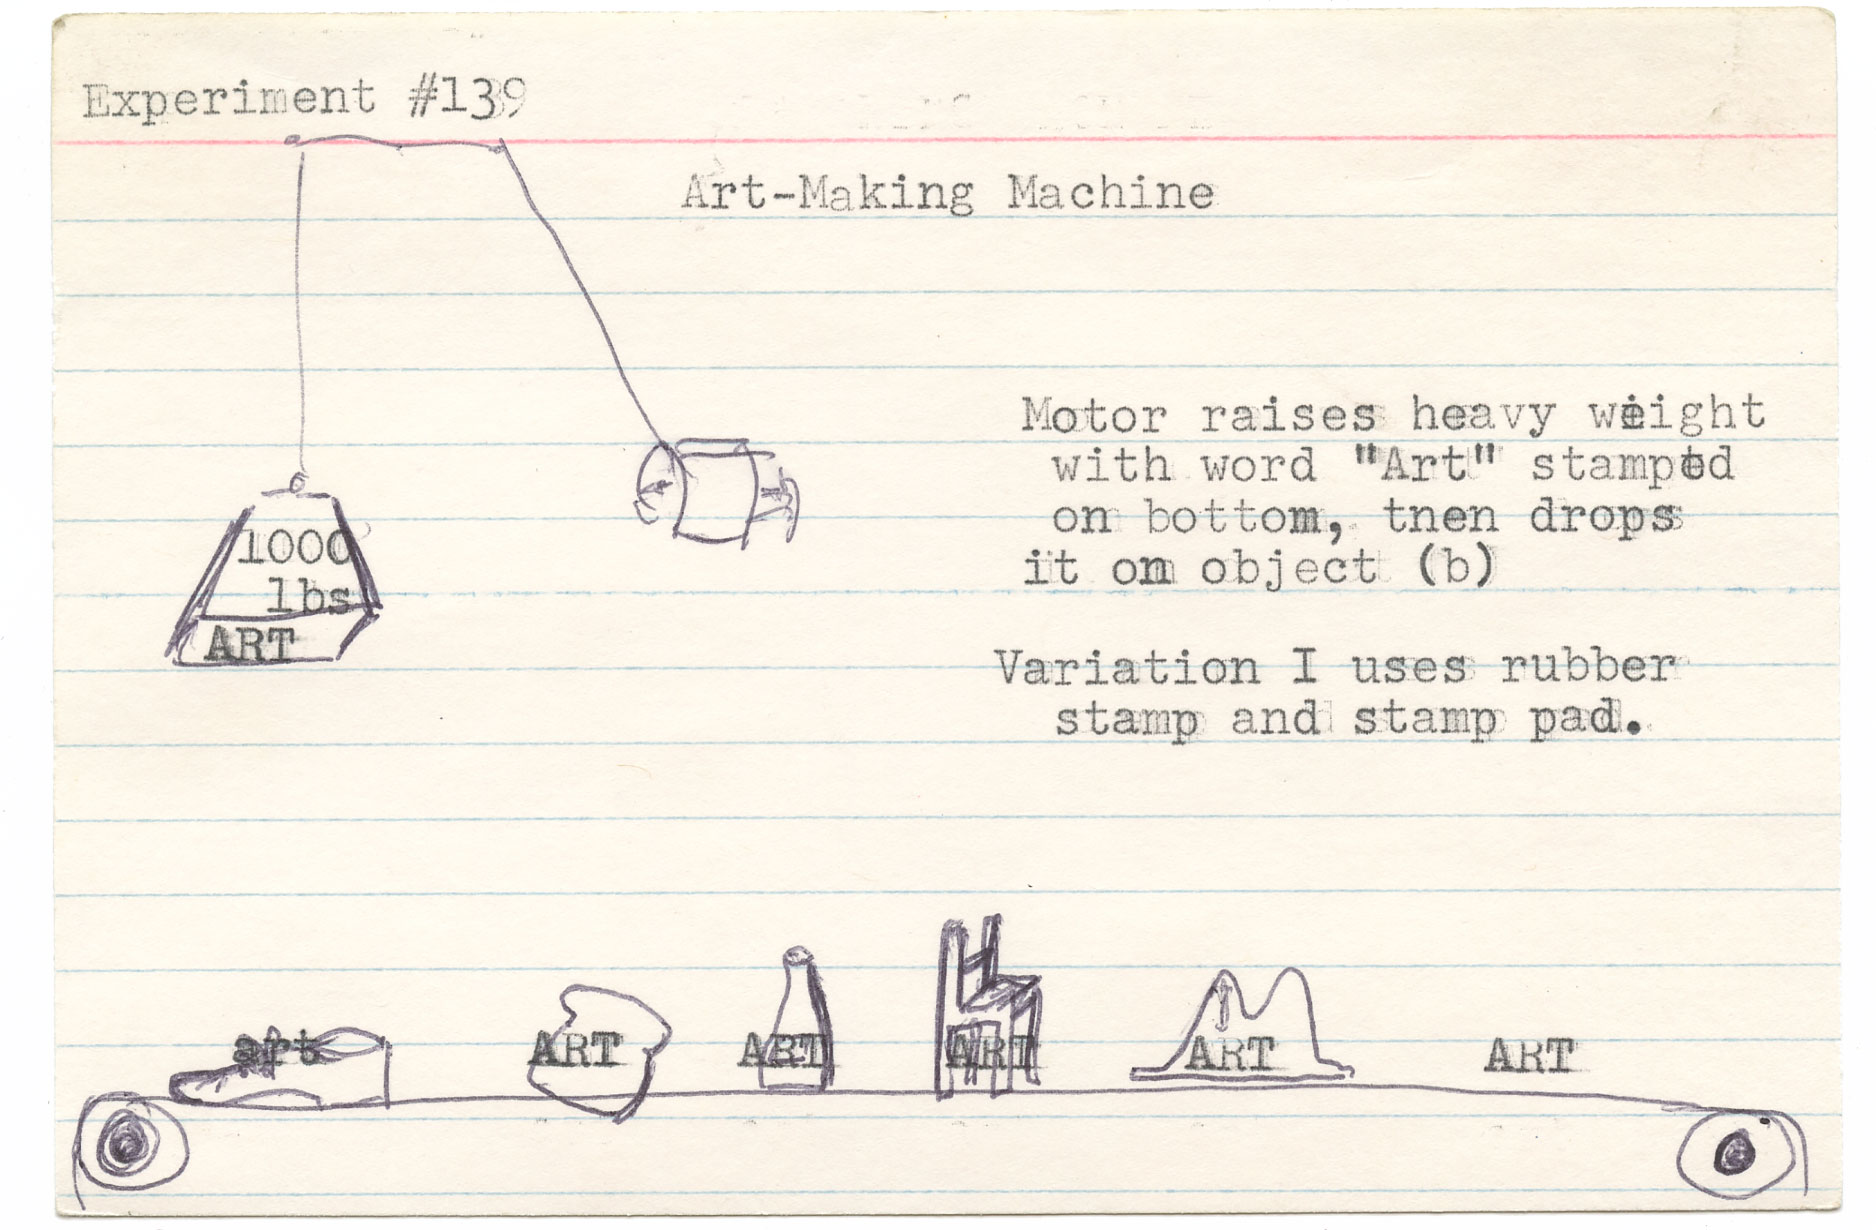 Experiment #139
Art-Making Machine
Motor raises heavy weight
with word "Art" stamped
on bottom, tnen drops
it on object (b)
1000
lbs
ART
Variation I uses rubber
stamp and stamp pad.
art ART ART ART ART ART